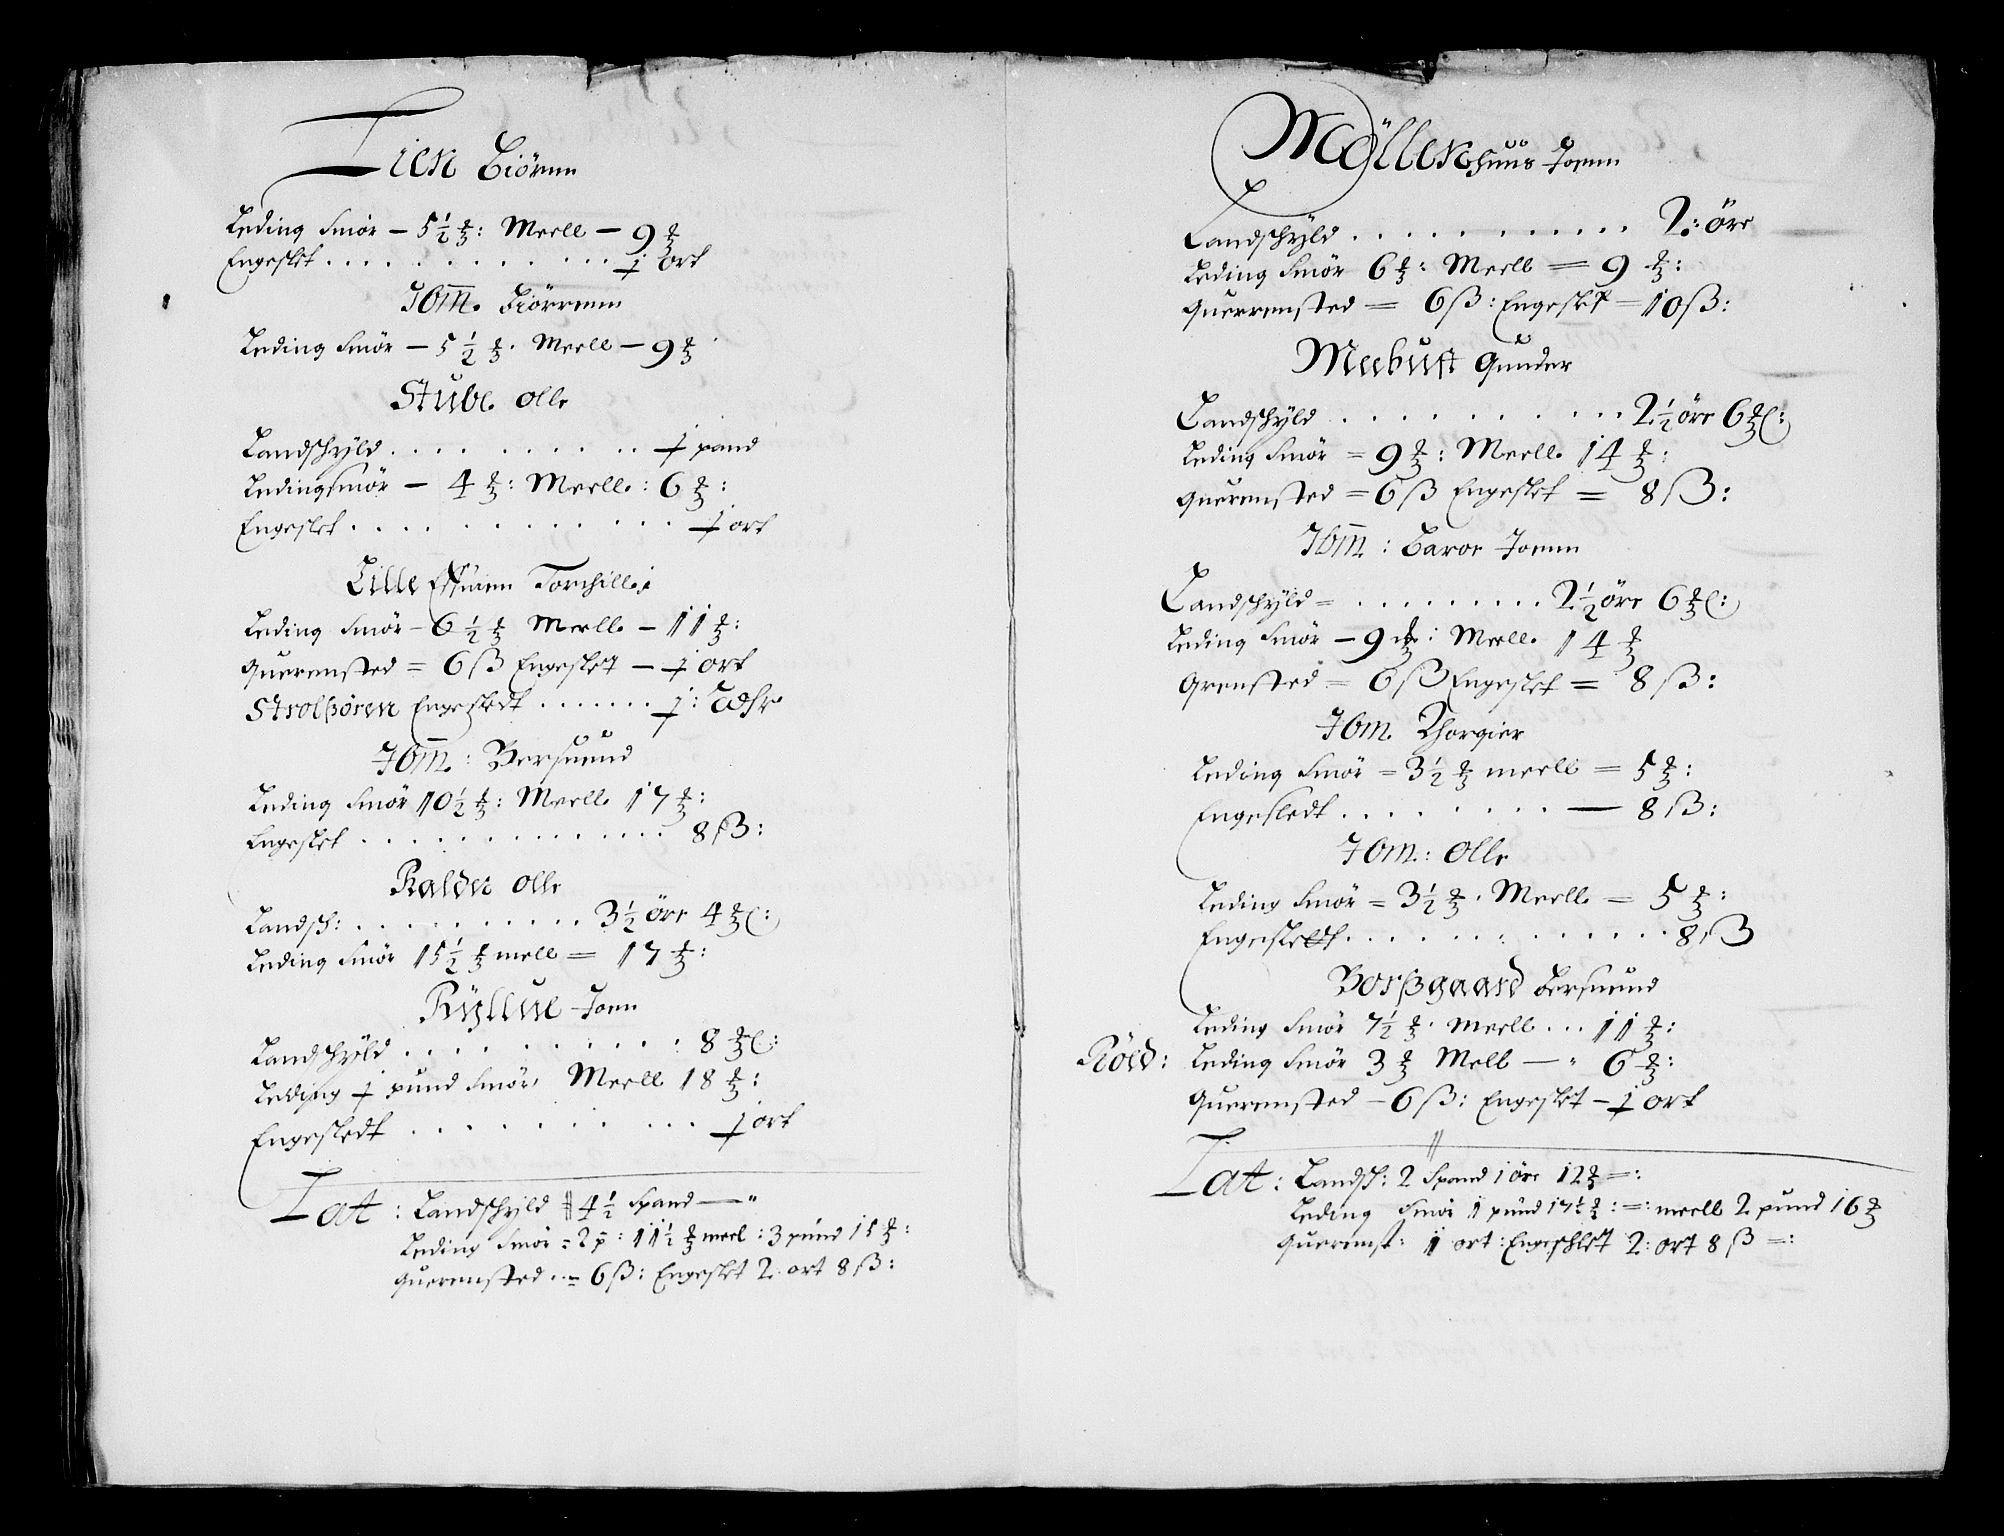 Tien Biörnn
Leding Smör – 5½ ℔: Meell – 9 ℔
Engeslet . . . . . . . . . . j ort
Ibm. Biörnnn
Leding Smör – 5½ ℔. Meell – 9 ℔
Stube Olle
Landschyld . . . . . . . . . j pand
Ledingsmör – 4 ℔: Meell: 6 ℔:
Engeslet . . . . . . . . . . j ort
Lille Torchilld:
Leding Smör – 6½ ℔ Meell – 11 ℔:
Quernsted = 6 ß Engeslet – j ort
Engesledt . . . . . . . j:
Ibm: Bersuend
Leding Smör 10½ ℔: Meell 17 ℔:
Engeslet . . . . . . . . . . . . 8 ß:
Kalden Olle
Landsch: . . . . . . . . . . 3½ öre 4 ℔:
Leding Smör 15½ ℔ mell = 17 ℔:
Joen
Landschyld . . . . . . . . . . 8 ℔:
Leding j pund Smör, Meell 18 ℔:
Engesledt . . . . . . . . . . j ort
Lat: Landschyld 4½ Spand — "
Leding Smör = 2 p: 11½ ℔ meel: 3 pund 15 ℔:
Quernsted . = 6 ß: Engeslet 2. ort 8 ß:
Möllerhuus Joenn
Landschyld . . . . . . . . . . . 2: öre
Leding Smör 6 ℔: Meell = 9 ℔:
Querrensted = 6 ß: Engeslet = 10 ß:
Meebust Gunder
Landschyld . . . . . . . . . . 2½ öre 6 ℔:
Leding Smör = 9 ℔: Meell. 14 ℔:
Quernsted = 6 ß Engeslet = 8 ß:
Ibm: Baroe Joenn
Landschyld = . . . . . . . . . 2½ öre 6 ℔:
Leding Smör – 9 ℔: Meell. 14 ℔
Qrensted = 6 ß Engeslet = 8 ß:
Ibm. Thorgier
Leding Smör = 3½ ℔ meell = 5 ℔:
Engesledt . . . . . . . . — 8 ß:
Ibm: Olle
Leding Smör = 3½ ℔. Meell. = 5 ℔:
Engesledt . . . . . . . . . . . . 8 ß
Borßgaard Bersuend
Leding Smör 7½ ℔. Meell . . . 11 ℔:
Röld: Leding Smör 3 ℔ Mell — " 6 ℔:
Quernsted – 6 ß: Engeslet – j ort
Lat: Landsch: 2 Spand 1 öre 12 ℔ =:
Leding Smör 1 pund 17½ ℔: =: meell 2 pund 16 ℔
Quernst: 1 ort: Engeschlet 2: ort 8 ß =: